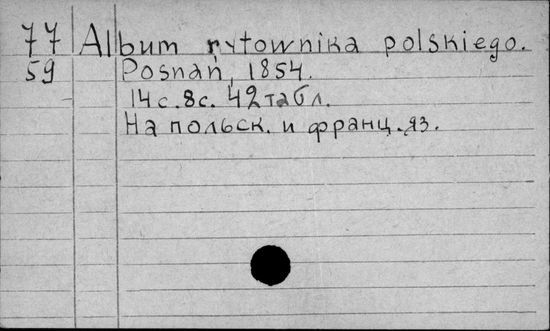 77 Album rytownika polskiego.
59 Posnań, 1854.
14 с. 8 с. 42 табл.
На польск. и франц. яз.